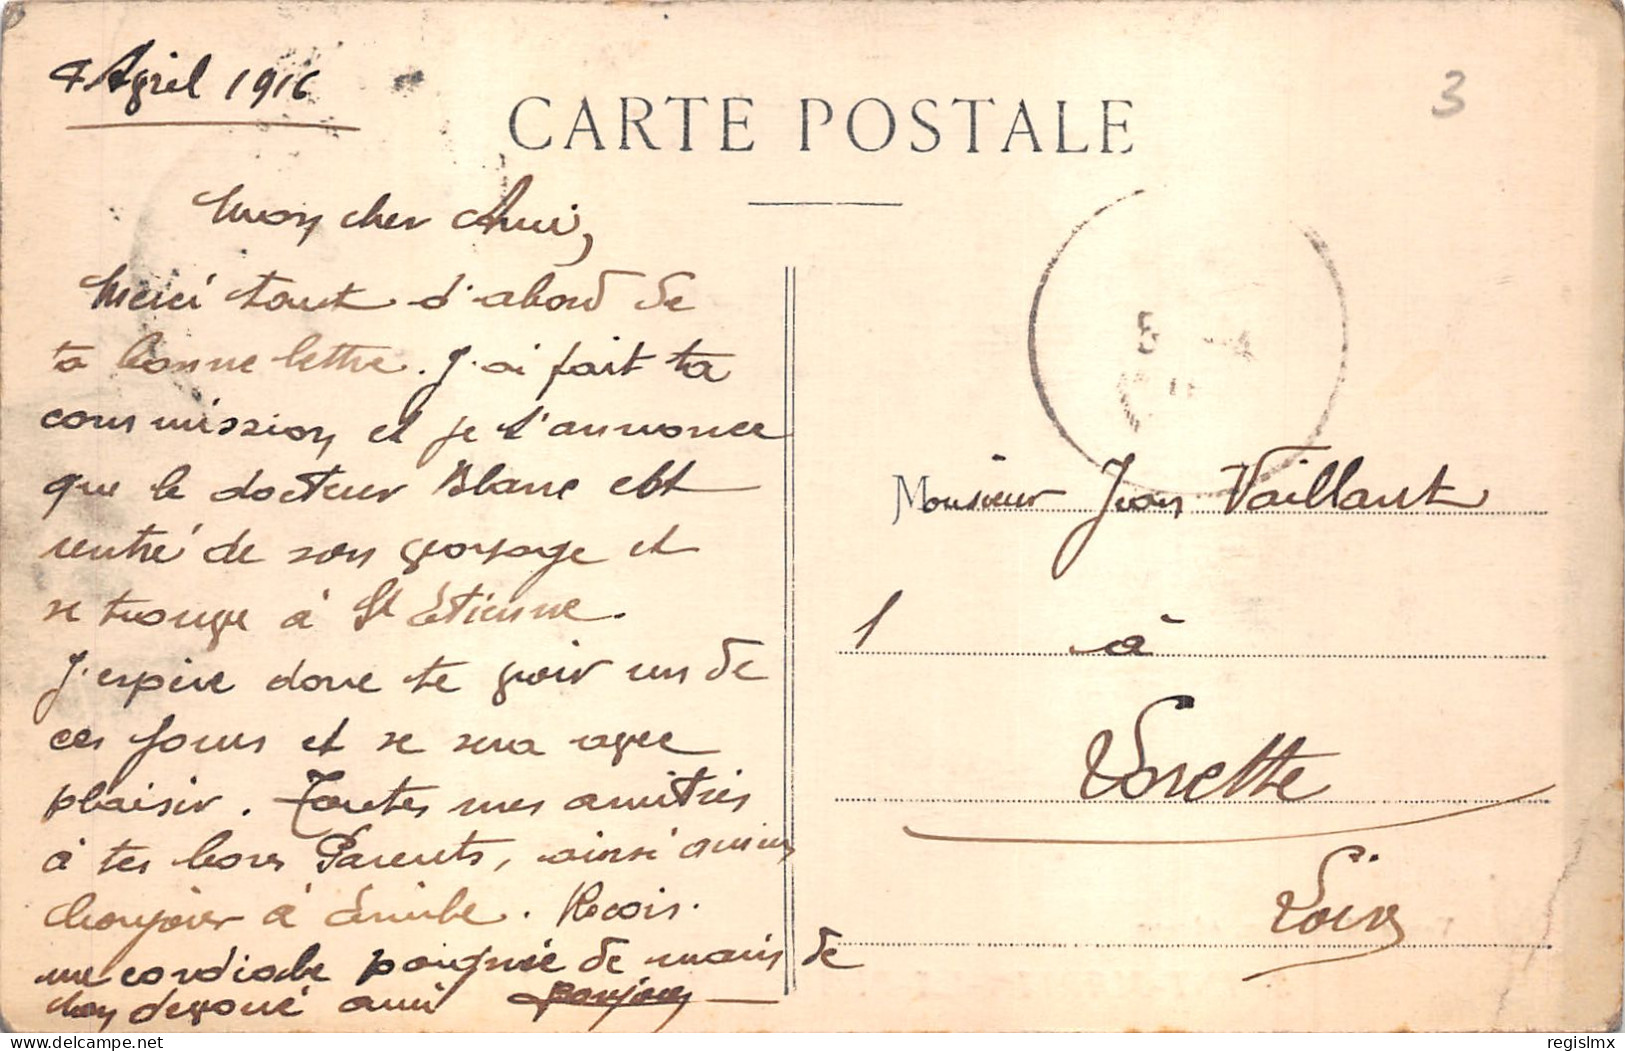 4 Avril 1916
CARTE POSTALE
3
Mon cher Ami,
Merci tout d'abord de
ta bonne lettre. J'ai fait ta
commission et je t'annonce
que le docteur Blanc est
rentré de son voyage et
se trouve à St Etienne.
J'espère donc te voir un de
ces jours et se sera avec
plaisir. Toutes mes amitiés
à tes bons Parents, ainsi qu'un
bonjour à Emile. Recois.
une cordiale poignée de main de
ton devoué ami
5 -4
Monsieur Jean Vaillant
à
Lorette
Loire
delcampe.net
regislmx